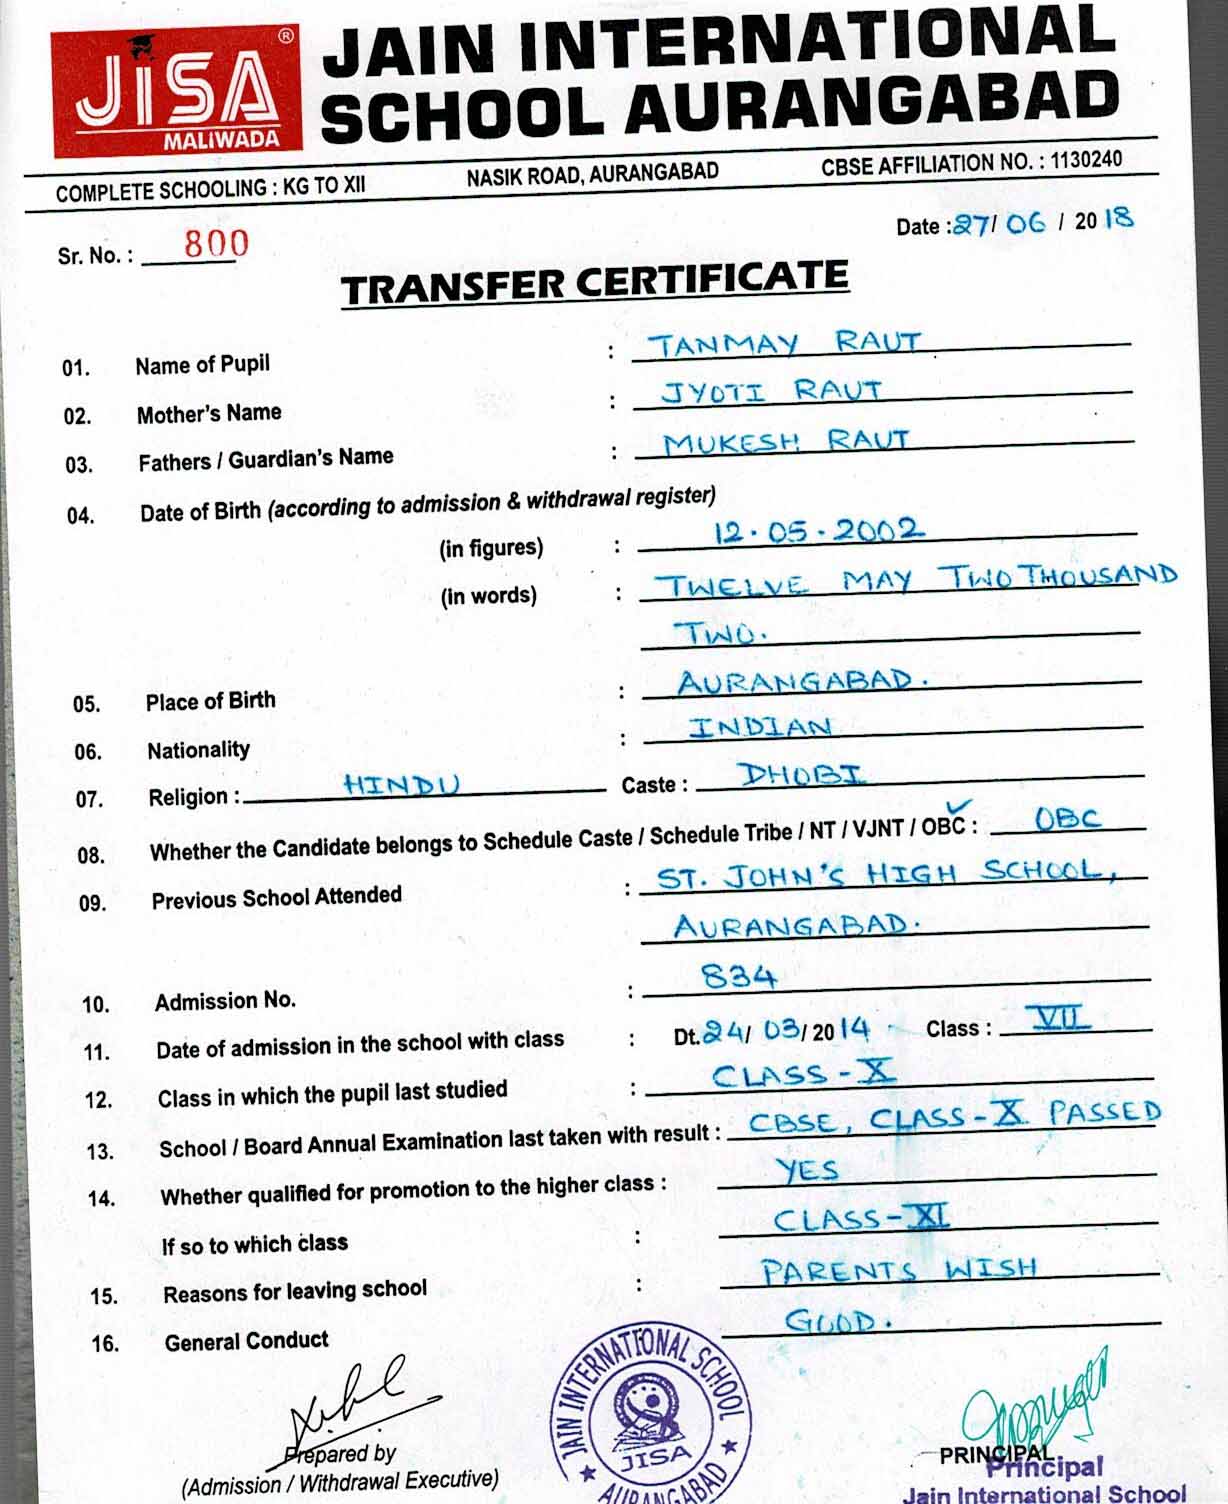 JiSA ®
MALIWADA
JAIN INTERNATIONAL
SCHOOL AURANGABAD
COMPLETE SCHOOLING : KG TO XII NASIK ROAD, AURANGABAD CBSE AFFILIATION NO. : 1130240
Sr. No. : 800 Date : 27/ 06 / 2018
TRANSFER CERTIFICATE
01. Name of Pupil : TANMAY RAUT
02. Mother's Name : JYOTI RAUT
03. Fathers / Guardian's Name : MUKESH RAUT
04. Date of Birth (according to admission & withdrawal register)
(in figures) : 12.05.2002
(in words) : TWELVE MAY TWO THOUSAND
TWO.
05. Place of Birth : AURANGABAD.
06. Nationality : INDIAN
07. Religion : HINDU Caste : DHOBI
08. Whether the Candidate belongs to Schedule Caste / Schedule Tribe / NT / VJNT / OBC : OBC
09. Previous School Attended : ST. JOHN'S HIGH SCHOOL,
AURANGABAD.
10. Admission No. : 834
11. Date of admission in the school with class : Dt. 24/ 03/ 2014 Class : VII
12. Class in which the pupil last studied : CLASS - X
13. School / Board Annual Examination last taken with result : CBSE, CLASS - X PASSED
14. Whether qualified for promotion to the higher class : YES
If so to which class : CLASS - XI
15. Reasons for leaving school : PARENTS WISH
16. General Conduct GOOD.
JAIN INTERNATIONAL SCHOOL
JISA
★ AURANGABAD ★
Prepared by
(Admission / Withdrawal Executive)
PRINCIPAL
Principal
Jain International School